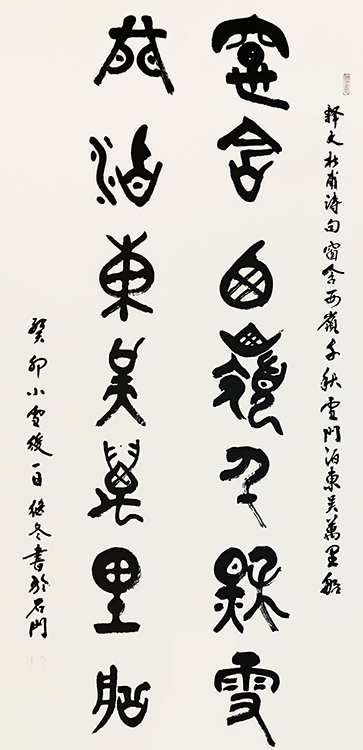 释文杜甫诗句窗含西嶺千秋雪門泊東吴萬里船
窗含西嶺千秋雪
門泊東吴萬里船
癸卯小雪後一日继冬書於石門